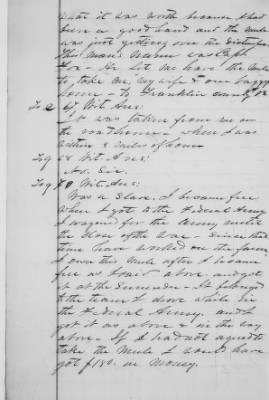 what it was worth because I had
been a good hand and the mule
was just getting over the distemper
This man's name was Capt
He let me have the mule
to take me, my wife & our baggage
home to Franklin county
To Q 67 Wit Ans:
It was taken from me on
the road home when I was
within 8 miles of home
To Q 68 Wit Ans:
No. Sir.
To Q 70 Wit Ans:
Was a slave. I became free
when I got to the Federal Army
I wagoned for the Army until
the close of the war. Since that
time have worked on the farm
I own this mule after I became
free as I said above and got
it at the Surrender. It belonged
to the team I drove while in
the Federal Army. and I
got it as above & in the way
above. If I had not agreed to
take the Mule I would have
got $180. in Money.